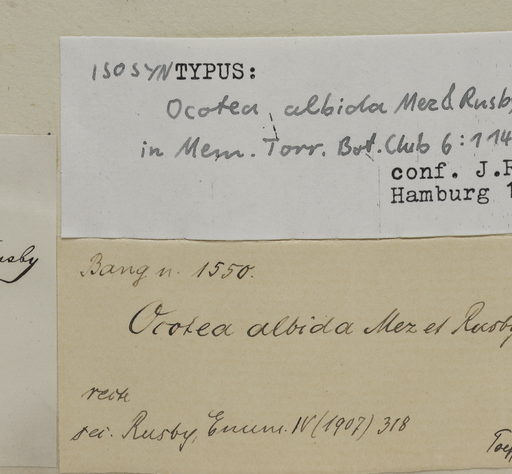 ISOSYNTYPUS:
Ocotea albida Mez & Rusby
in Mem. Torr. Bot. Club 6:114
conf. J.R
Hamburg 1
usby
Bang n. 1550.
Ocotea albida Mez et Rusby
sec. Rusby, Enum. IV (1907) 318